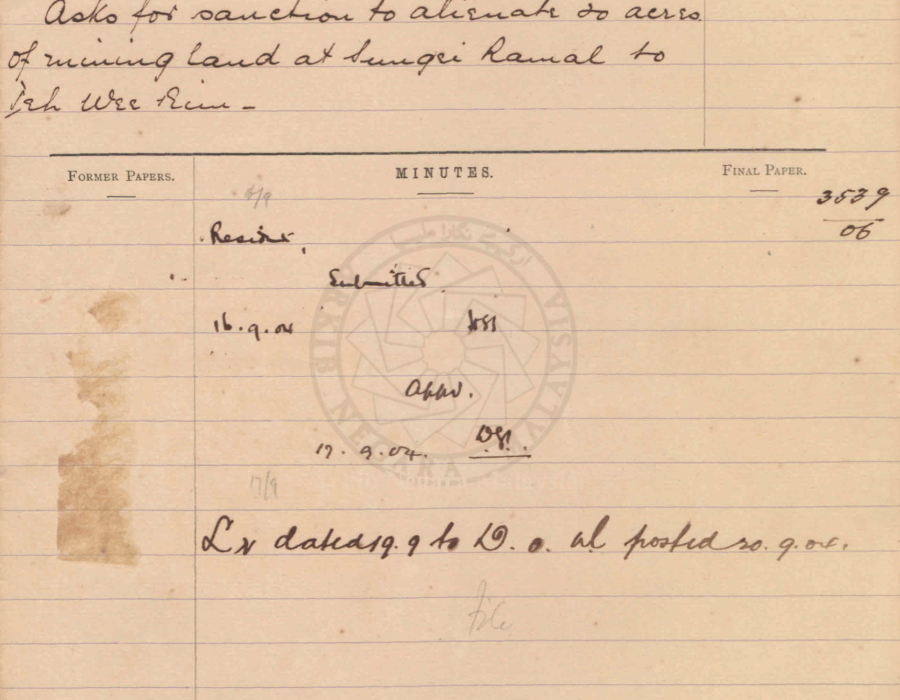 Asks for sanction to alienate 20 acres
of mining land at Sungei Ramal to
Teh Wee
FORMER PAPERS.
MINUTES.
FINAL PAPER.
3539
06
Resident,
Submitted
16.9.04
Appd.
17.9.04.
17/9
Lr dated 19.9 to D.O. Ul posted 20.9.04.
File
ARKIB NEGARA MALAYSIA